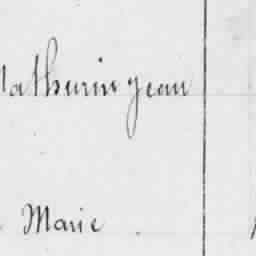 Mathurin Jean
Marie